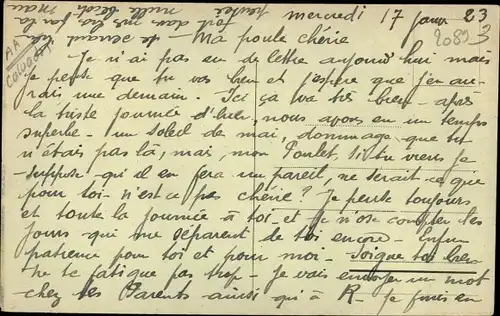 mercredi 17 janv 23
Ma poule chérie
Je n'ai pas eu de lettre aujourd'hui mais
je pense que tu vas bien et j'espère que j'en au-
rais une demain - Ici ça va très bien - après
la triste journée d'hier, nous avons eu un temps
superbe - un soleil de mai, dommage que tu
n'étais pas là, mais, mon Poulet, si tu viens je
suppose qu'il en fera un pareil, ne serait-ce que
pour toi - n'est ce pas chérie? Je pense toujours
et toute la journée à toi - et je n'ose compter les
jours qui me séparent de toi encore - Enfin
patience pour toi et pour moi - Soigne toi bien
Ne te fatigue pas trop - Je vais envoyer un mot
chez tes Parents ainsi qu'à R - Je pense en